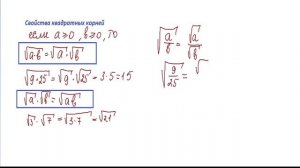 Свойства квадратных корней
если a ≥ 0, b ≥ 0, то
√a·b = √a · √b
√9·25 = √9 · √25 = 3·5 = 15
√a · √b = √ab
√3 · √7 = √3·7 = √21
√a/b = √a/√b
√9/25 = √